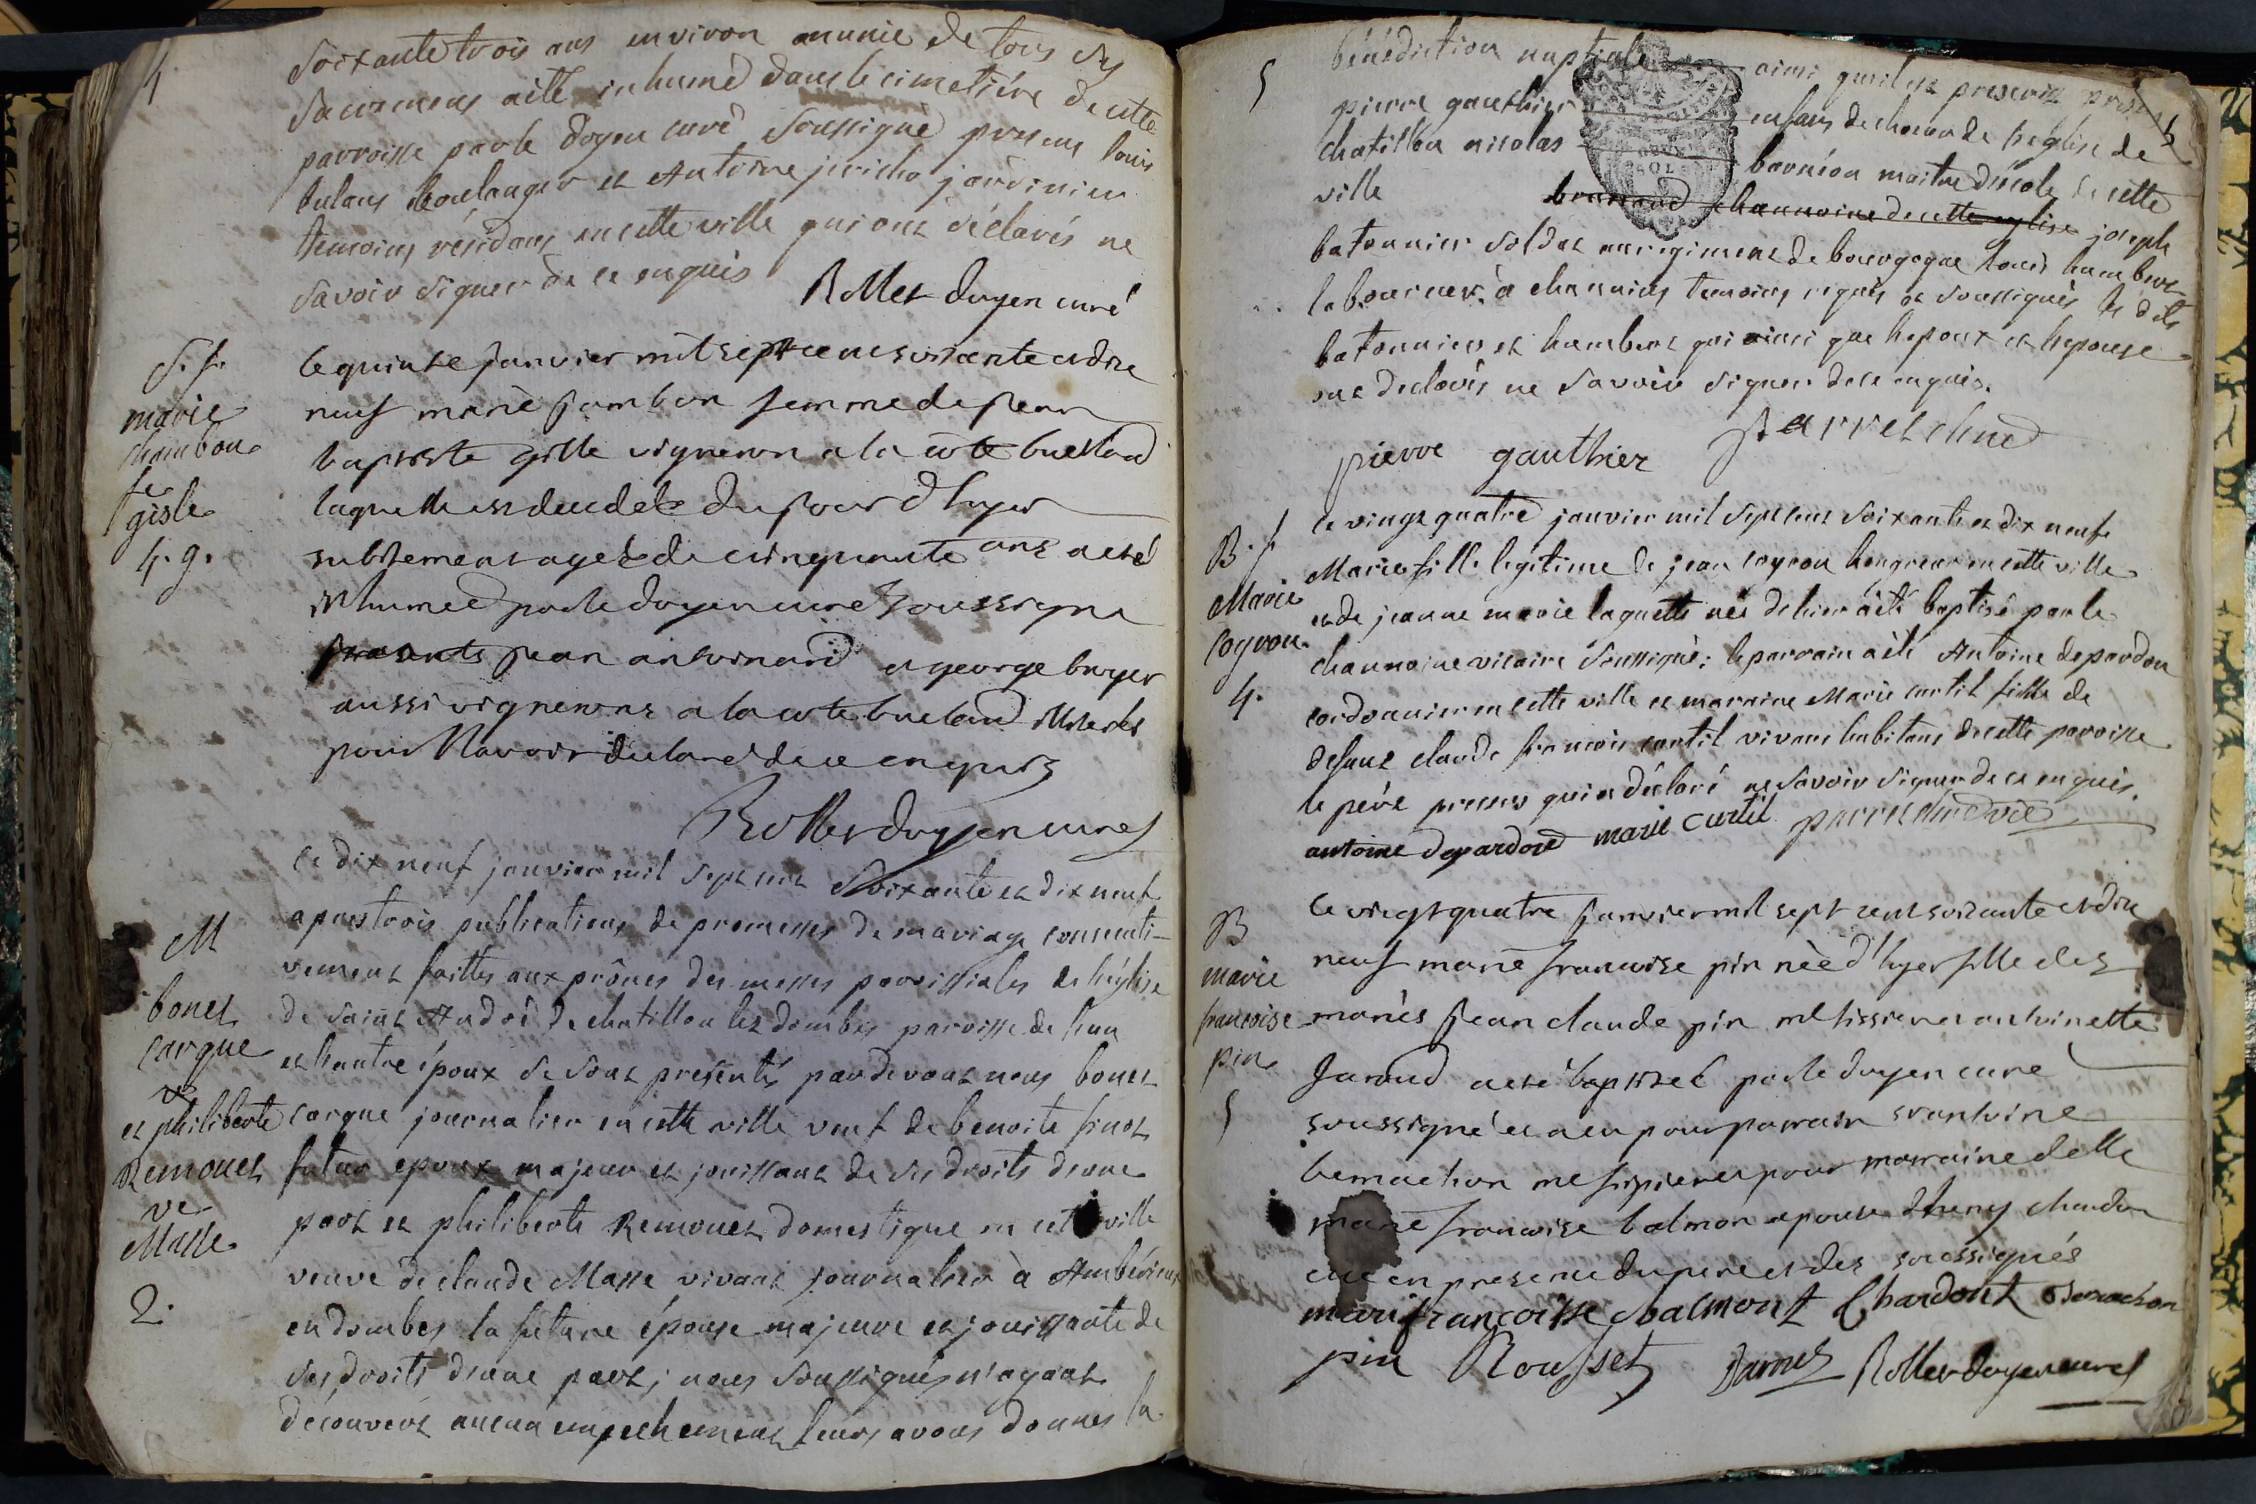 4
soixante trois ans environ munie de tous ses
sacremens a èté inhumé dans le cimetière de cette
parroisse par le doyen curé soussigné presens louis
boulanger et Antoine jericho jardinier
temoins résidans en cette ville qui ont déclarés ne
savoir signer de ce enquis Rollet doyen curé
S. f.
marie
chambon
fe
gisle
4. 9.
le quinze janvier mil sept cent soixante et dix
neuf marie jambon femme de jean
baptiste gille vigneron a la cote buelland
laquelle est decedeé du jour d'hyer
subitement ageé de cinquante ans a eté
inhumeé par le doyen curé soussigné
presents jean antoinard et george buyer
aussi vignerons a la cote bueland illiterés
pour l'avoir declaré de ce enquis
Rollet doyen curé
M
bonet
carque
vf
et philiberte
Remouet
ve
Masse
2.
le dix neuf janvier mil sept cent soixante et dix neuf
apres trois publications de promesses de mariage consecuti-
vement faittes aux prônes des messes paroissiales de l'église
de saint Andoé de chatillon les dombes paroisse de l'un
et l'autre époux se sont presentés pardevant nous bonet
carque journalier en cette ville veuf de benoite finot
futur epoux majeur et jouissant de ses droits d'une
part et philiberte Remouet domestique en cette ville
veuve de claude Masse vivant journalier à Ambérieux
en dombes la future épouse majeure et jouissante de
ses droits d'une part ; nous soussignés n'ayant
découvert aucun empechement leurs avons donnés la
5
bénédiction nuptiale ainsi qu'il est prescrit presens
pierre gauthier enfans de choeur de l'eglise de
chatillon nicolas barnéon maitre d'école de cette
ville channoine de cette eglise joseph
batonnier soldat au regiment de bourgogne louis humbert
laboureur à chanains temoins requis et soussignés les dits
batonnier et humbert qui ainsi que l'epoux et l'epouse
ont declarés ne savoir signer de ce enquis.
pierre gauthier
B. f
Marie
coyron
4.
le vingt quatre janvier mil sept cent soixante et dix neuf
Marie fille legitime de jean coyron hongreur en cette ville
et de jeanne marie laquette née de hier à èté baptisé par le
channoine vicaire soussigné ; le parrain à èté Antoine depardon
cordonnier en cette ville et marraine Marie curtil fille de
defunt claude francois curtil vivant habitans de cette paroisse
le père present qui a déclaré ne savoir signer de ce enquis.
antoine depardond marie curtil
B
marie
francoise
pin
5
le vingt quatre janvier mil sept cent soixante et dix
neuf marie francoise pin neé d'hyer fille des
mariés jean claude pin me tissier et antoinette
Jaroud a eté baptiseé par le doyen curé
soussigné et a eu pour parrain sr antoine
bernachon me fripier et pour marraine delle
marie francoise balmon epouse d'heny chardon
en presence du pere et des soussignés
marifrançoise balmont Chardont Bernachon
pin Rousset Rollet doyen curé